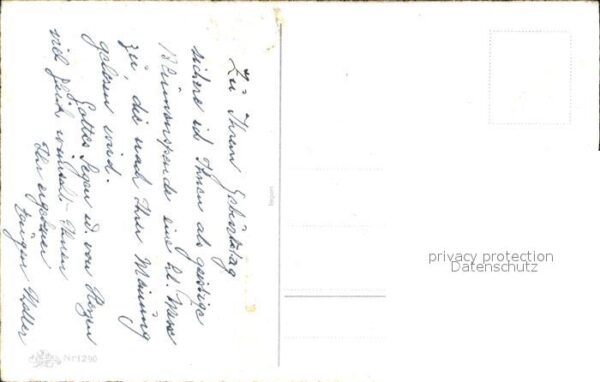 Zu Ihrem Geburtstag
sichere ich Ihnen als geistige
Blumenspende eine hl. Messe
zu, die nach Ihrer Meinung
gelesen wird.
Gottes Segen u. von Herzen
viel Glück wünscht Ihnen
Ihr ergebener
privacy protection
Datenschutz
Nr 1290